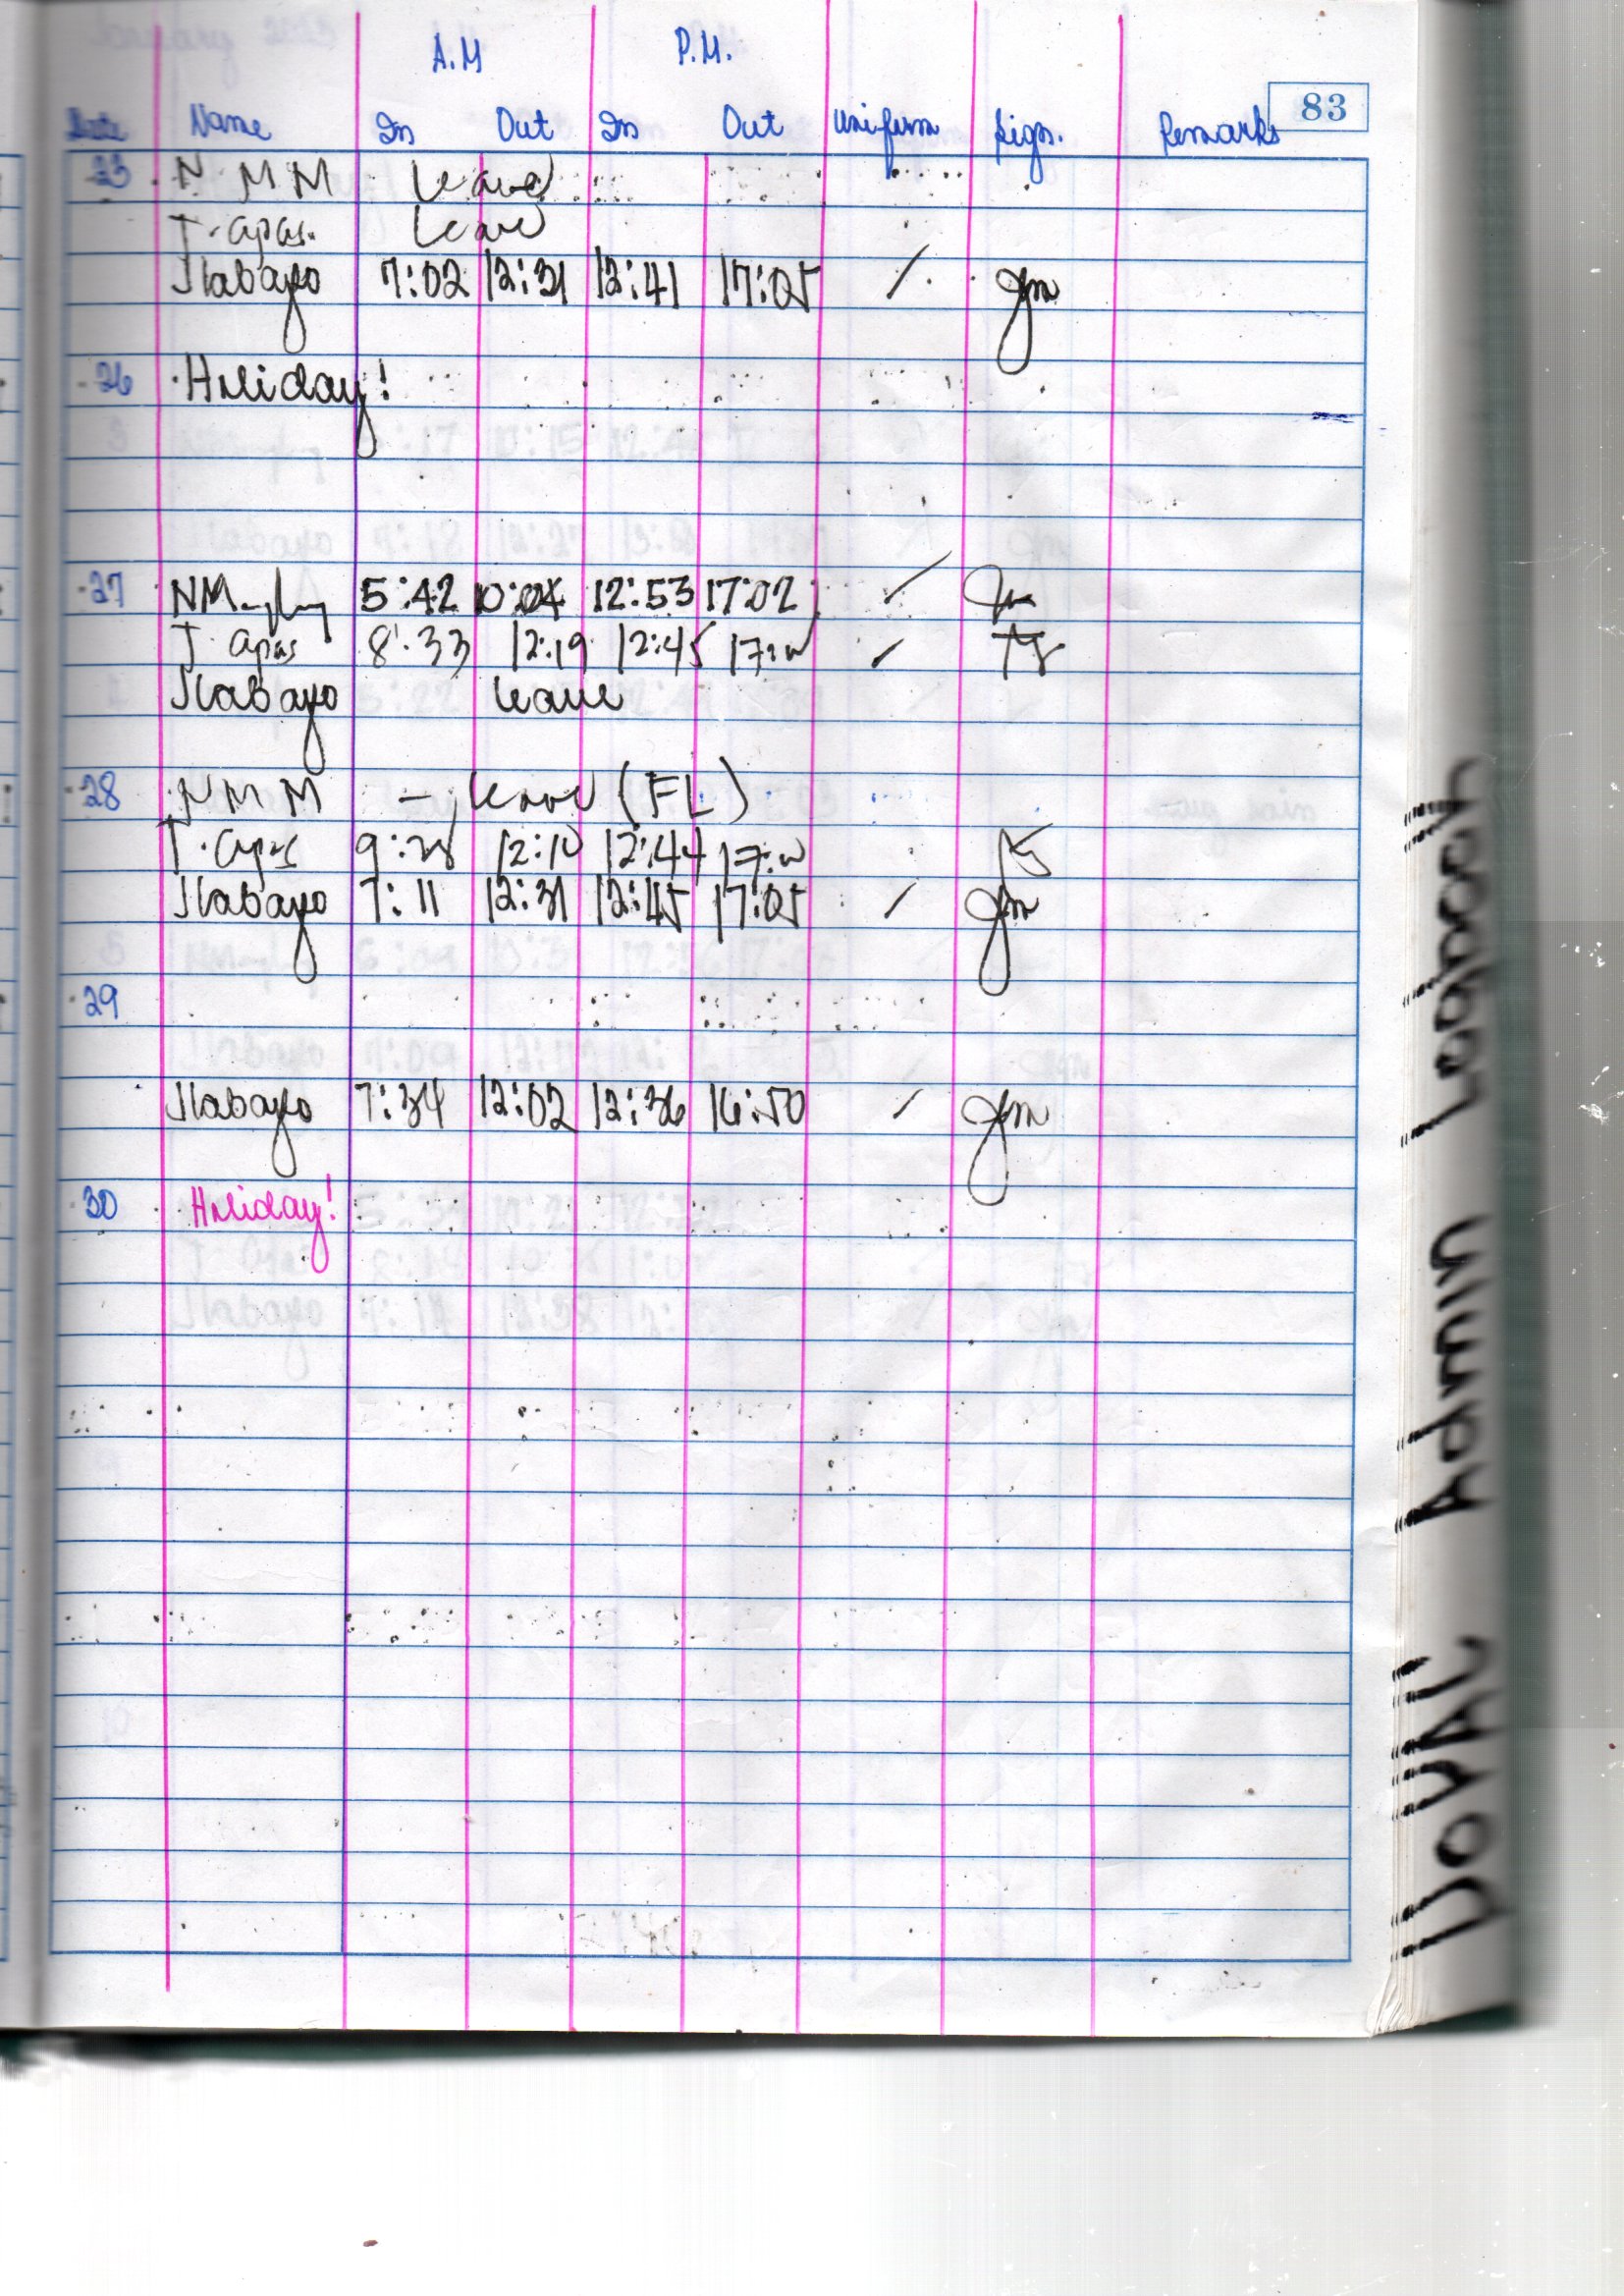 A.M P.M.
83
Date Name In Out In Out Uniform Sign. Remarks
23 N M M Leave
T. apas. Leave
Jlabayo 7:02 12:31 12:41 17:05 /
26 Holiday!
27 5:42 10:04 12:53 17:02 /
T. apas 8:33 12:19 12:45 /
Jlabayo leave
28 N M M - leave (FL)
T. apas 12:10 12:44
Jlabayo 7:11 12:31 12:45 17:05 /
29
Jlabayo 7:34 12:02 12:36 16:50 /
30 Holiday!
DOVAL Admin Logbook